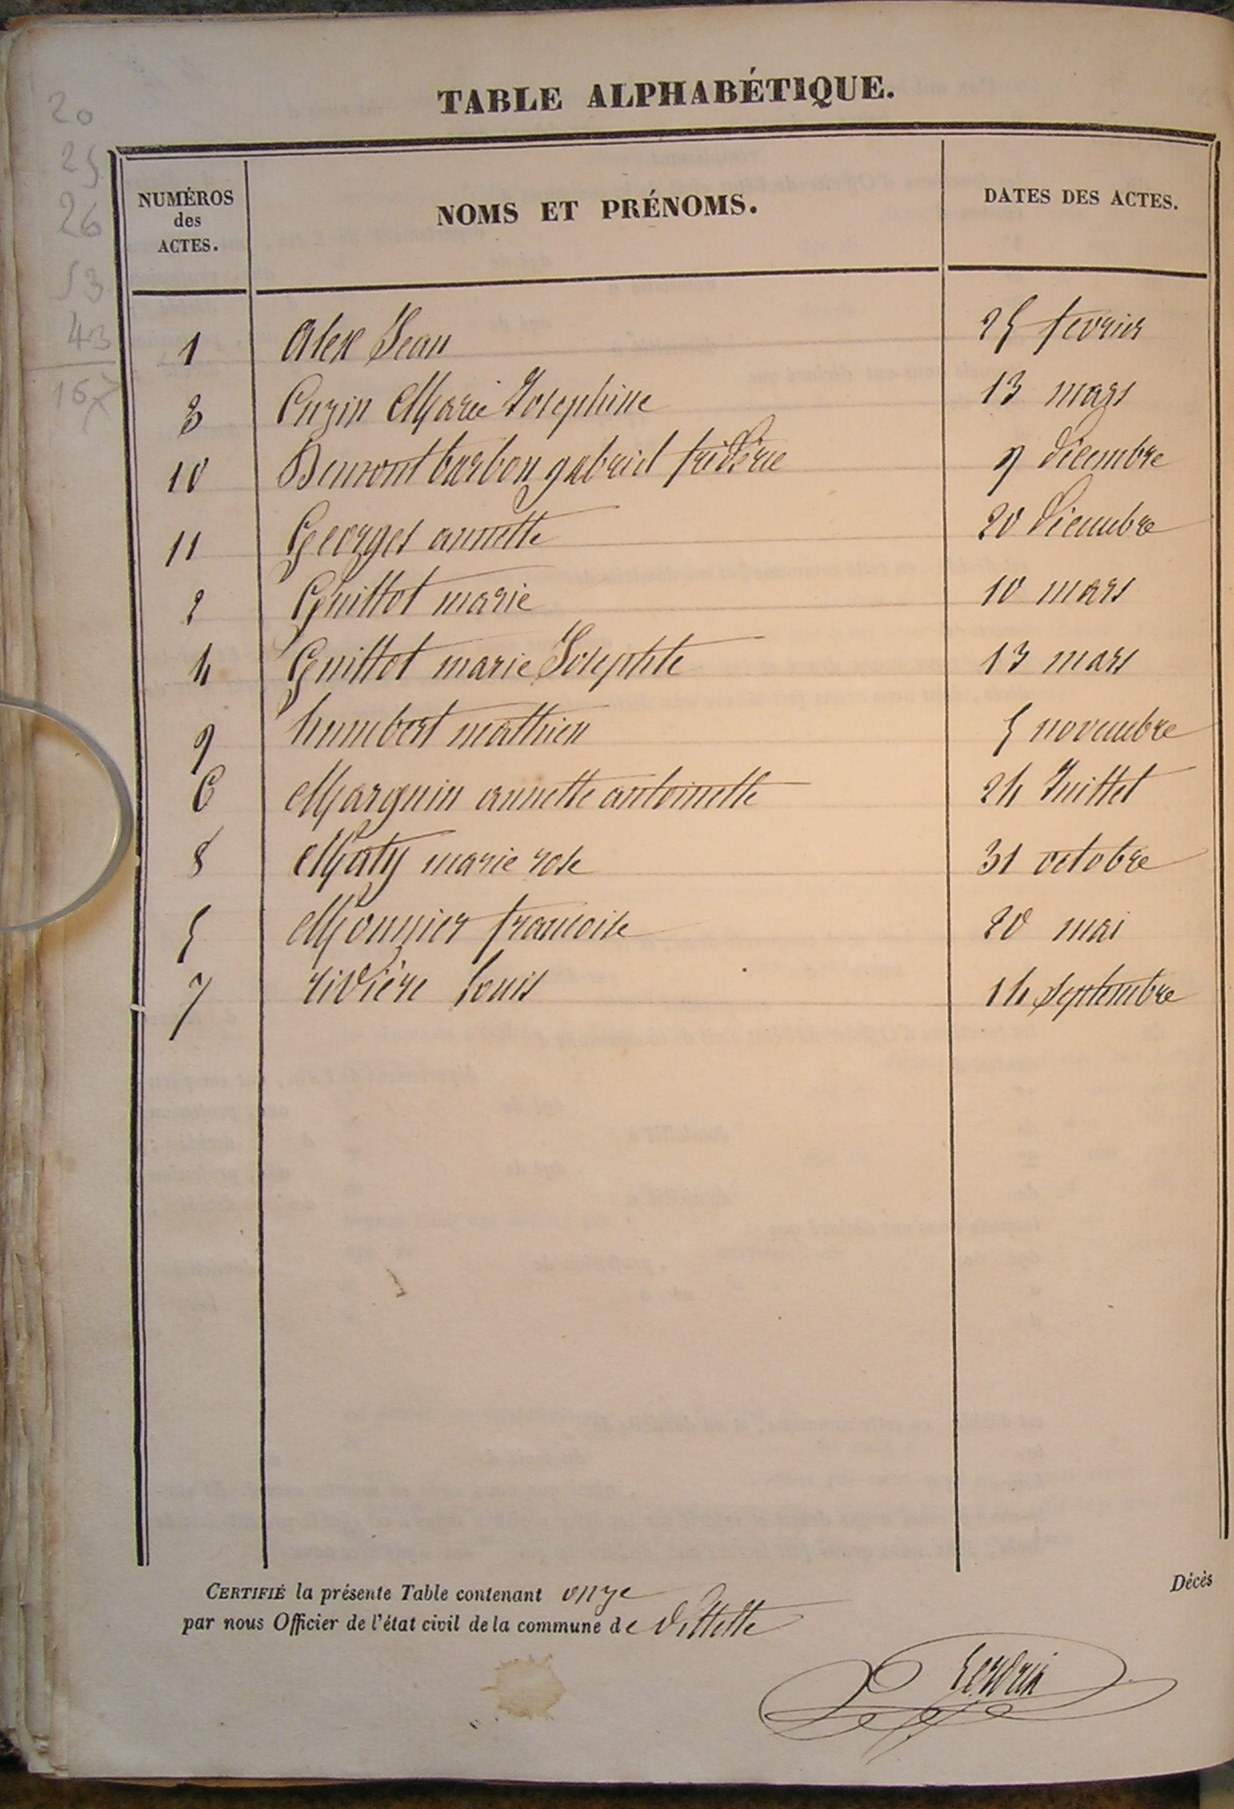 TABLE ALPHABÉTIQUE.
20
25
26
53
43
167
NUMÉROS
des
ACTES.
NOMS ET PRÉNOMS.
DATES DES ACTES.
1 Alex Jean 25 fevrier
3 Cuzin Marie Josephine 13 mars
10 Demontbarbon gabriel frideric 9 décembre
11 Georges annette 20 décembre
2 Guillot marie 10 mars
4 Guillot marie Josephte 13 mars
9 humbert mathieu 5 novembre
6 Marguin annette antoinette 24 Juillet
8 Maty marie rose 31 octobre
5 Monnier francoise 20 mai
7 rivière Louis 14 septembre
CERTIFIÉ la présente Table contenant onze
Décès
par nous Officier de l'état civil de la commune de Villette